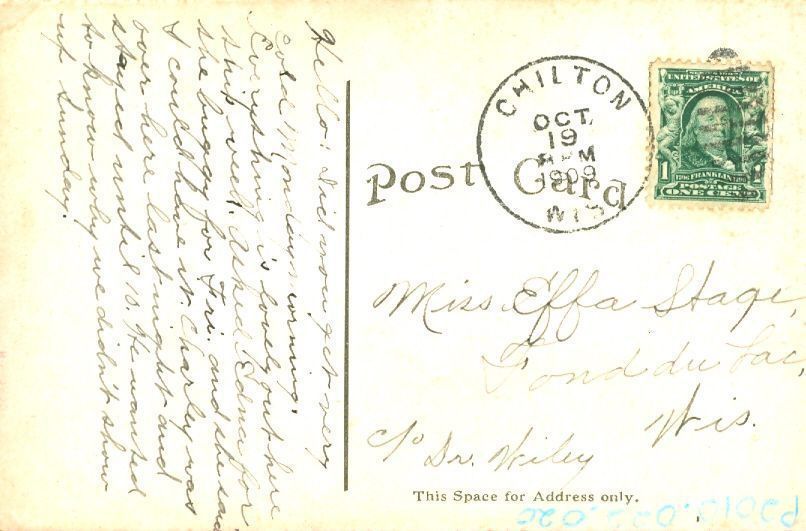 Hello! Did you get very
cold Monday morning.
Everything is lovely out here
this week. Asked Edna for
the buggy for Fri. and she said
I could have it. Charley was
over here last night and
stayed until 10. He wanted
to know why we didn't show
up Sunday.
Post Card
CHILTON
OCT.
19
PM
1909
WIS
UNITED STATES OF
AMERICA
1 FRANKLIN 1
POSTAGE
ONE CENT
Miss Effa Stage,
Fond du Lac,
Wis.
c/o Dr. Wiley
This Space for Address only.